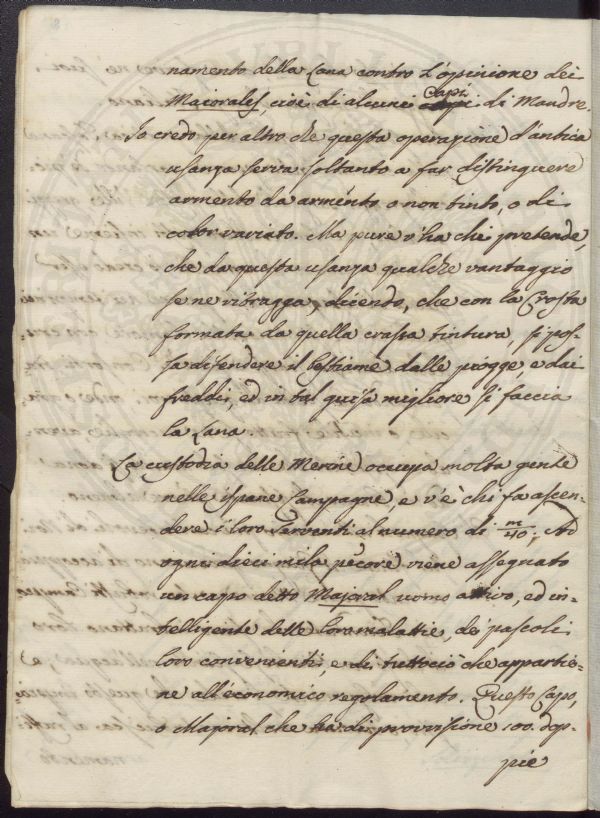 namento della Lana contro l'opinione dei
Majorales, cioè di alcuni Capi di Mandre.
Io credo per altro che questa operazione d'antica
usanza serva soltanto a far distinguere
armento da armento o non tinto, o di
color variato. Ma pure v'ha chi pretende,
che da questa usanza qualche vantaggio
se ne ritragga, dicendo, che con la Crosta
formata da quella crassa tintura, si pos-
sa difendere il bestiame dalle piogge e dai
freddi, ed in tal guisa migliore si faccia
la Lana.
La custodia delle Merine occupa molta gente
nelle ispane Campagne, e v'è chi fa ascen-
dere i loro Serventi al numero di m/40; Ad
ogni dieci mila pecore viene assegnato
un capo detto Majoral uomo attivo, ed in-
telligente delle loro malattie, dei pascoli
loro convenienti, e di tuttociò che appartie-
ne all'economico regolamento. Questo Capo,
o Majoral che ha di provvisione 100. dop-
pie